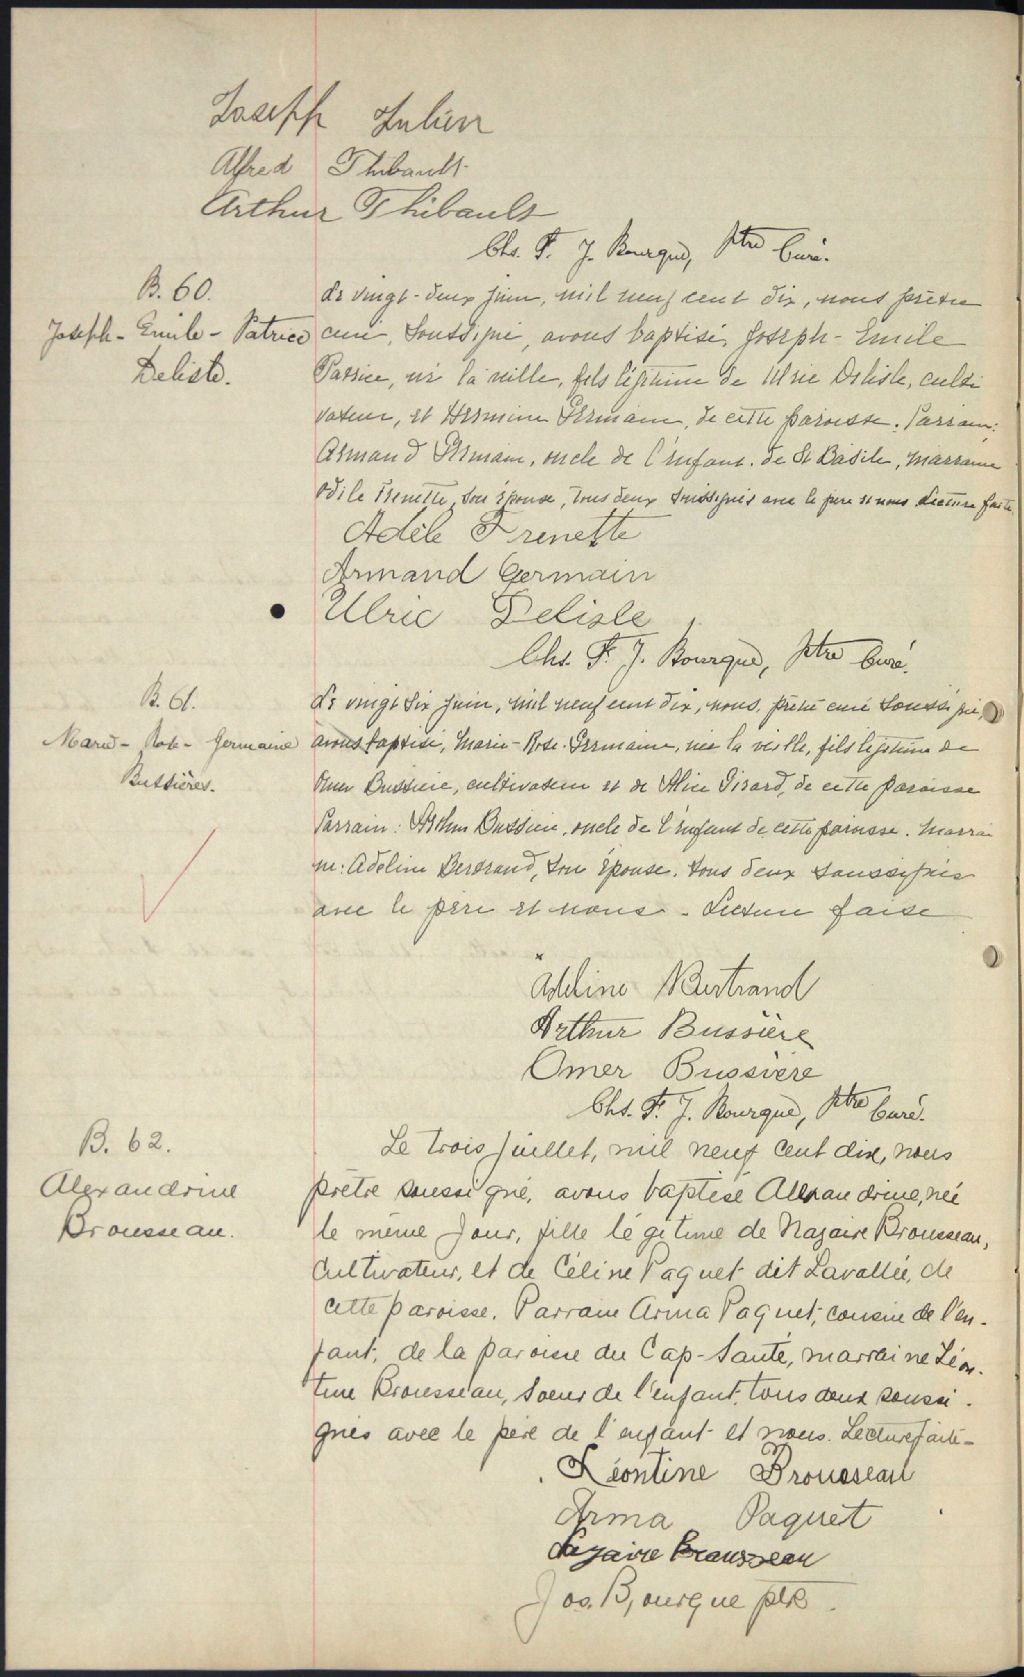 Joseph Julien
Alfred Thibault
Arthur Thibault
Chs. F. J. Bourque, Ptre Curé.
B. 60.
Joseph - Emile - Patrice
Delisle.
Le vingt-deux juin, mil neuf cent dix, nous prêtre
curé, soussigné, avons baptisé, Joseph - Emile
Patrice, né la veille, fils légitime de Ulric Delisle, culti
vateur, et Hermine Germain, de cette paroisse. Parrain:
Armand Germain, oncle de l'enfant. de St Basile, marraine
Odile Frenette, son épouse, tous deux soussignés avec le père et nous Lecture faite
Adèle Frenette
Armand Germain
Ulric Delisle
Chs. F. J. Bourque, Ptre Curé.
B. 61.
Marie - Rose - Germaine
Bussières.
Le vingt six juin, mil neuf cent dix, nous, prêtre curé soussigné,
avons baptisé, Marie-Rose-Germaine, née la veille, fille légitime de
Omer Bussière, cultivateur et de Alice Girard, de cette paroisse
Parrain: Arthur Bussière, oncle de l'enfant de cette paroisse. Marrai
ne: Adeline Bertrand, son épouse. tous deux soussignés
avec le père et nous - Lecture faite
Adeline Bertrand
Arthur Bussière
Omer Bussière
Chs. F. J. Bourque, Ptre Curé.
B. 62.
Alexandrine
Brousseau.
Le trois Juillet, mil neuf cent dix, nous
prêtre soussigné, avons baptisé Alexandrine, née
le même jour, fille légitime de Nazaire Brousseau,
Cultivateur, et de Céline Paquet dit Lavallée, de
cette paroisse. Parrain Arma Paquet, cousin de l'en-
fant, de la paroisse du Cap-Santé, marraine Léon-
tine Brousseau, soeur de l'enfant, tous deux soussi-
gnés avec le père de l'enfant et nous. Lecture faite -
Léontine Brousseau
Arma Paquet
Nazaire Brousseau
Jos. Bourque ptre.